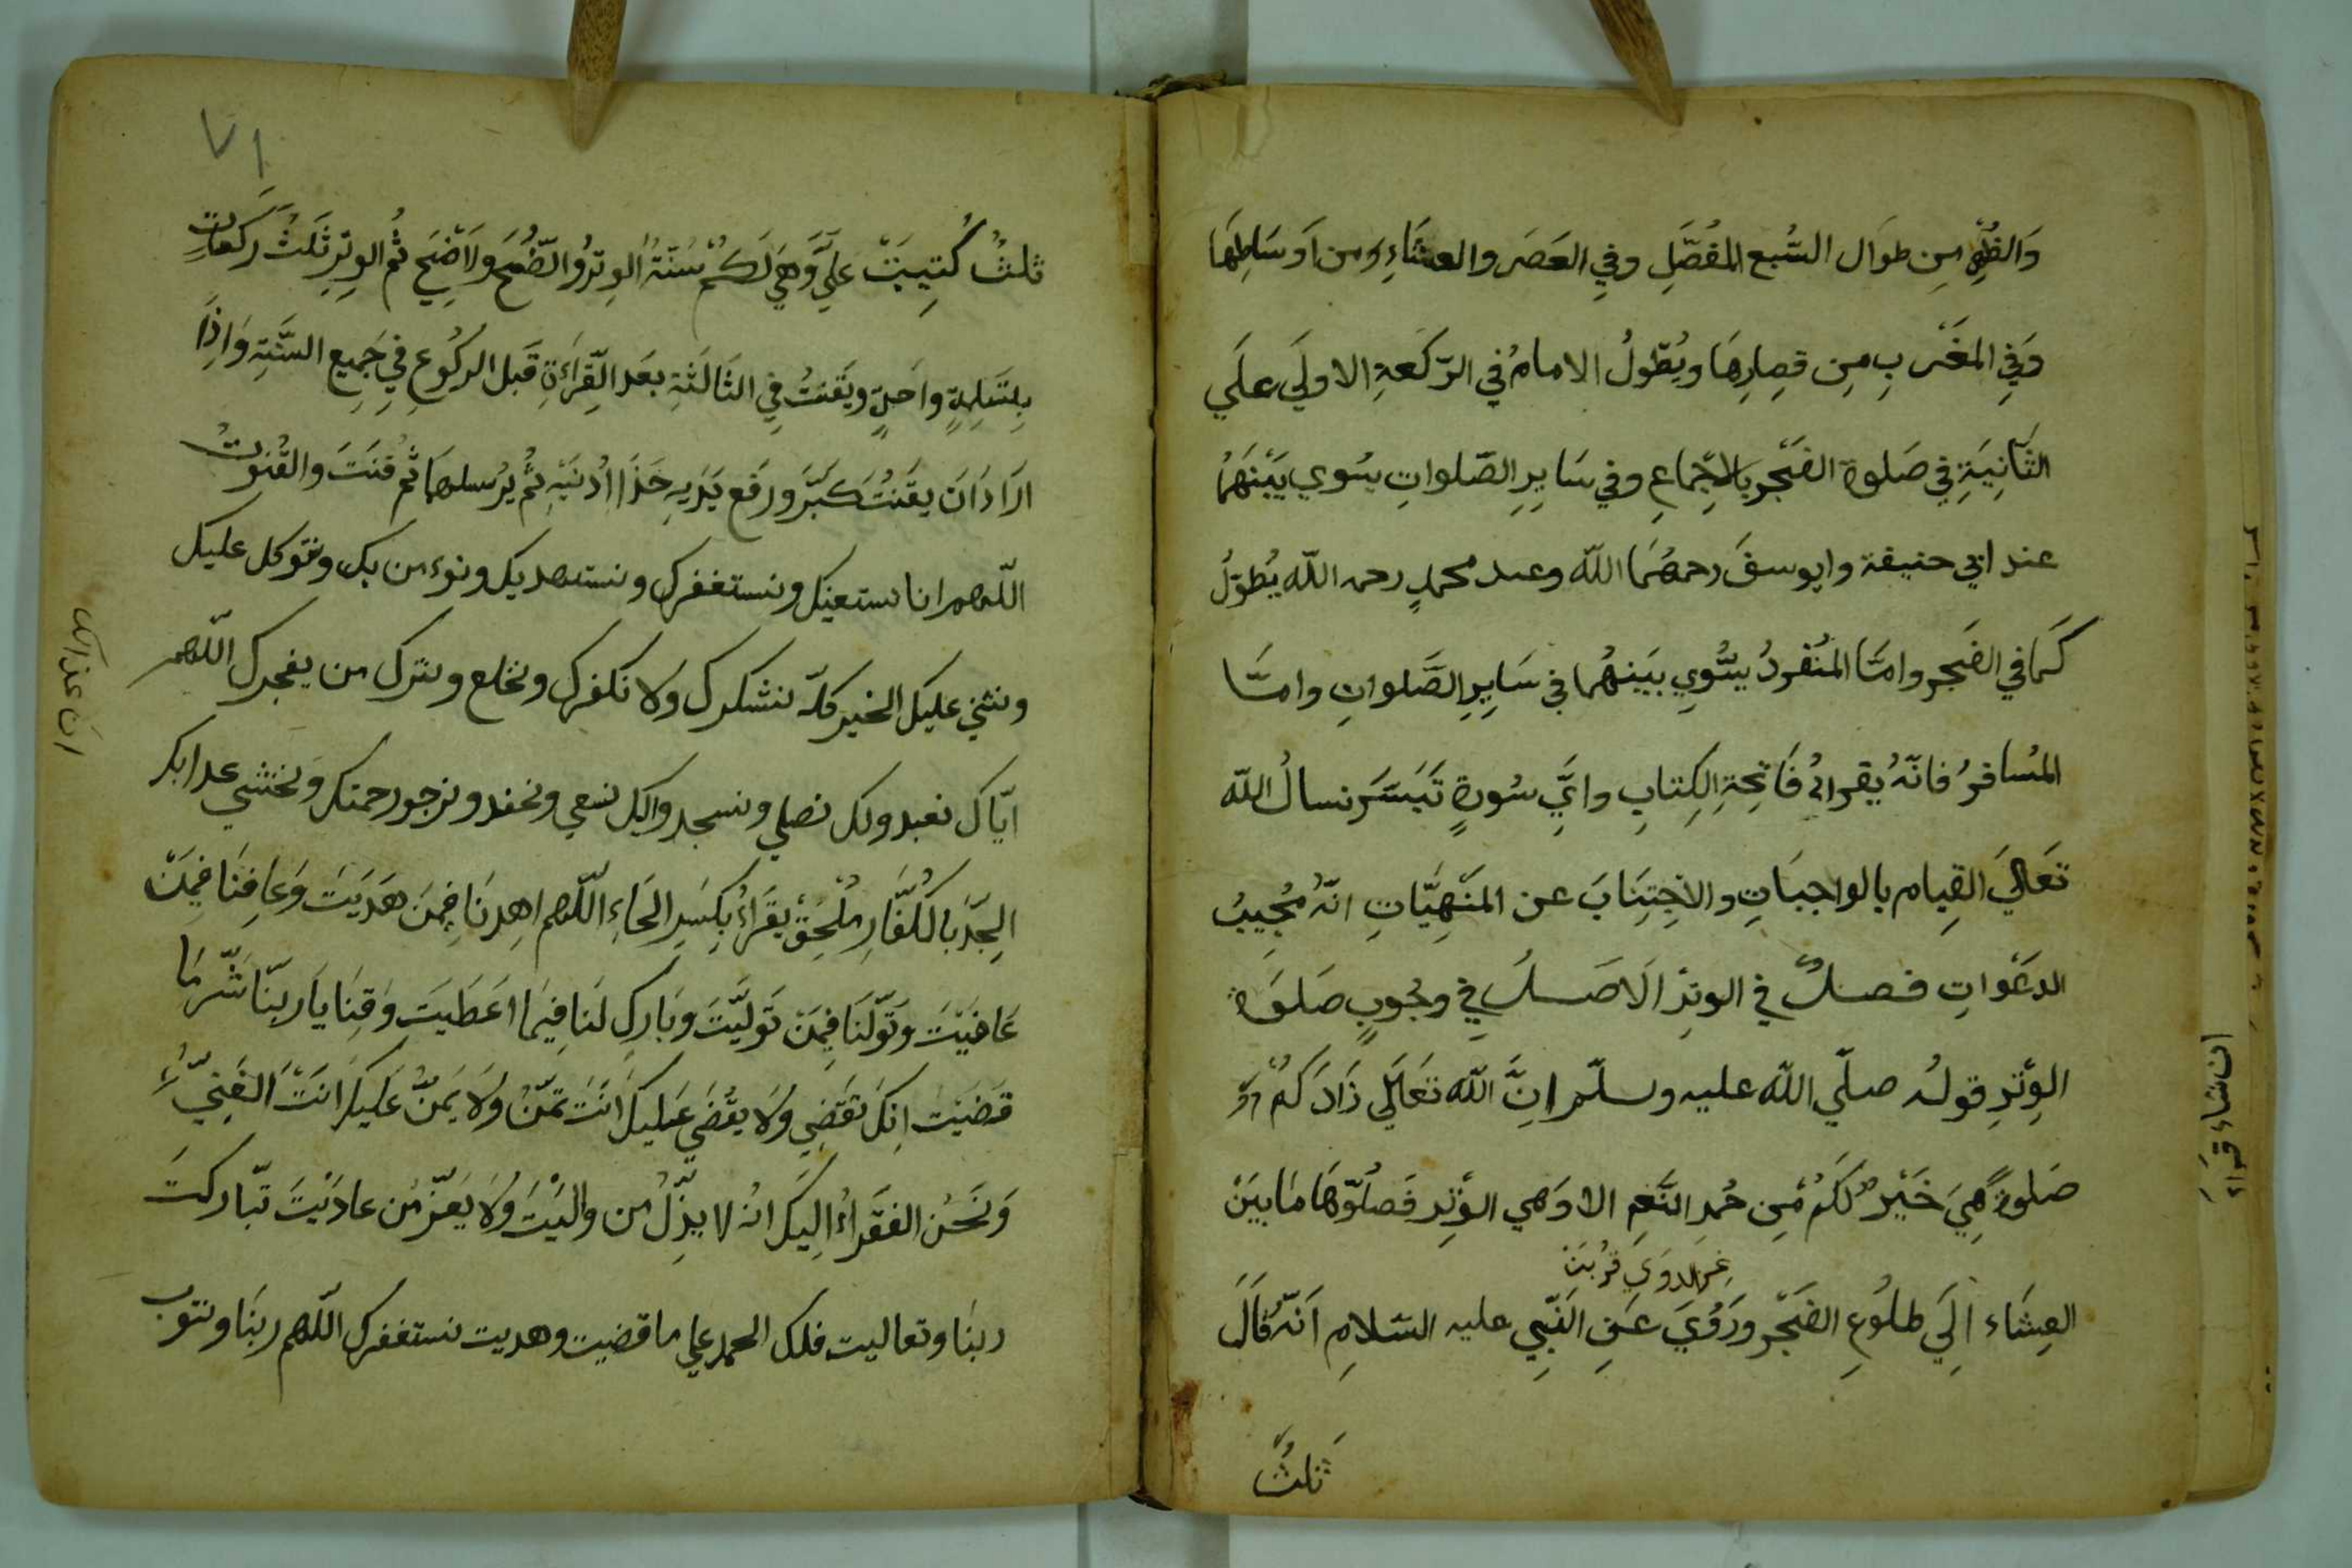 وَالظُهْرِ مِن طوَال السَّبع المُفصَّلِ وفِي العَصَر والعشَاءِ ومن اَوسَاطِهَا
وَفِي المغَرْبِ مِن قصِارِهَا ويُطَولُ الامامُ فِي الرّكَعةِ الاولَي علَي
الثَّانِيَةِ فِي صَلوة الفجْرِ بالاِجماعِ وفي سَايِرِ الصّلواتِ يسُوي بَيْنَهمُا
عند ابي حنيفة وابوسفَ رحمهُمَا اللّه وعند محمدٍ رحمه اللّه يُطوّلُ
كَما في الفَجر وامّا المنُفردُ يسُّوِي بَينهُما فِي سَايِرِ الصَّلواتِ وامّا
المُسافرُ فانّهُ يقراُ فَاتِحِةِ الكِتابِ وايَّ سُورةٍ تَيَسَّرَ نسالُ اللّه
تَعَاليَ القِيام بالواجبَاتِ والاجتِنَابَ عن المَنْهِيَّاتِ انّهُ مُجِيبُ
الدعَواتِ فصلٌ في الوترِ الَاصَلُ فِي وجُوبِ صَلوَة
الوِتْرِ قوله صلّي اللّه عليه وسلّم اِنَّ اللّه تعَالَي زَادَكمُ
صَلوةً هِيَ خَيْرٌ لكَمُ مِن حُمرِ النَّعَمِ الا وَهي الوِتْرِ فَصلُّوّهَا مَا بيَنَ
العِشَاء اِلَي طلوُعِ الفَجْر ورَوُيَ عَنِ النَّبِي عليه السّلامِ اَنّهُ قَالَ
ثلثٌ
ان شاء قراء
٧١
ثلثٌ كُتِبتَ عَليَّ وَهَي لَكمُ سُنّةُ الوِترُ والضُّحَي والاَضْحَي ثُم الوِترِ ثَلثُ رَكعَاتٍ
بِتسَلِيمةٍ واحَدةٍ ويَقنتُ فِي الثَالثَةِ بعَد القِرَاَءَةِ قَبل الركُوعِ فِي جَمِيع السَّنَةِ وَاِذَا
اَرَادَ اَن يقَنتُ كَبَّرَ ورَفع يَدَيهِ حَذَا اُذنَيْهِ ثُم يُرْسلهمَا ثُم قنتَ والقُنوتُ
اللّهم انا نستعينك ونستغفرك ونستهديك ونوءمن بك ونتوكل عليك
ونثني عليك الخير كلّه نشكرك ولا نكفرك ونخلع ونترك من يفجرك اللّهم
ايّاك نعبد ولك نصلي ونسجد واليك نسعي ونحفد ونرجو رحمتك ونخشي عذابك
الجِدّ بالكُفَّارِ مُلْحِقٌ يقَرَاُ بِكسَرِ الحَاءِ اللّهم اهِدنَا فِيمَن هَديَتَ وَعَافِنَا فِيمَنْ
عَافيَتَ وتَوّلنَا فِيمَنْ تَولَّيَتَ وبَارِك لنَا فِيمَا اعَطَيتَ وَقِنَا يَا ربّنَا شَّرمَا
قضَيتَ انِكَ تقَضِي ولَا يقُضَي عَليكَ انَتَ تمَنُّ ولَا يمَنُّ عَليكَ انَتَ الغَنِيُّ
وَنحَنُ الفقَراءُ اِليكَ انهُ لا يذِّلُ من واليْتَ ولَا يَعَزّ مُن عاديَتَ تبّاركتَ
ربنَا وتعاليت فلك الحمد علي ما قضيت وهديت نستغفرك اللّهم ربنَا ونتوب